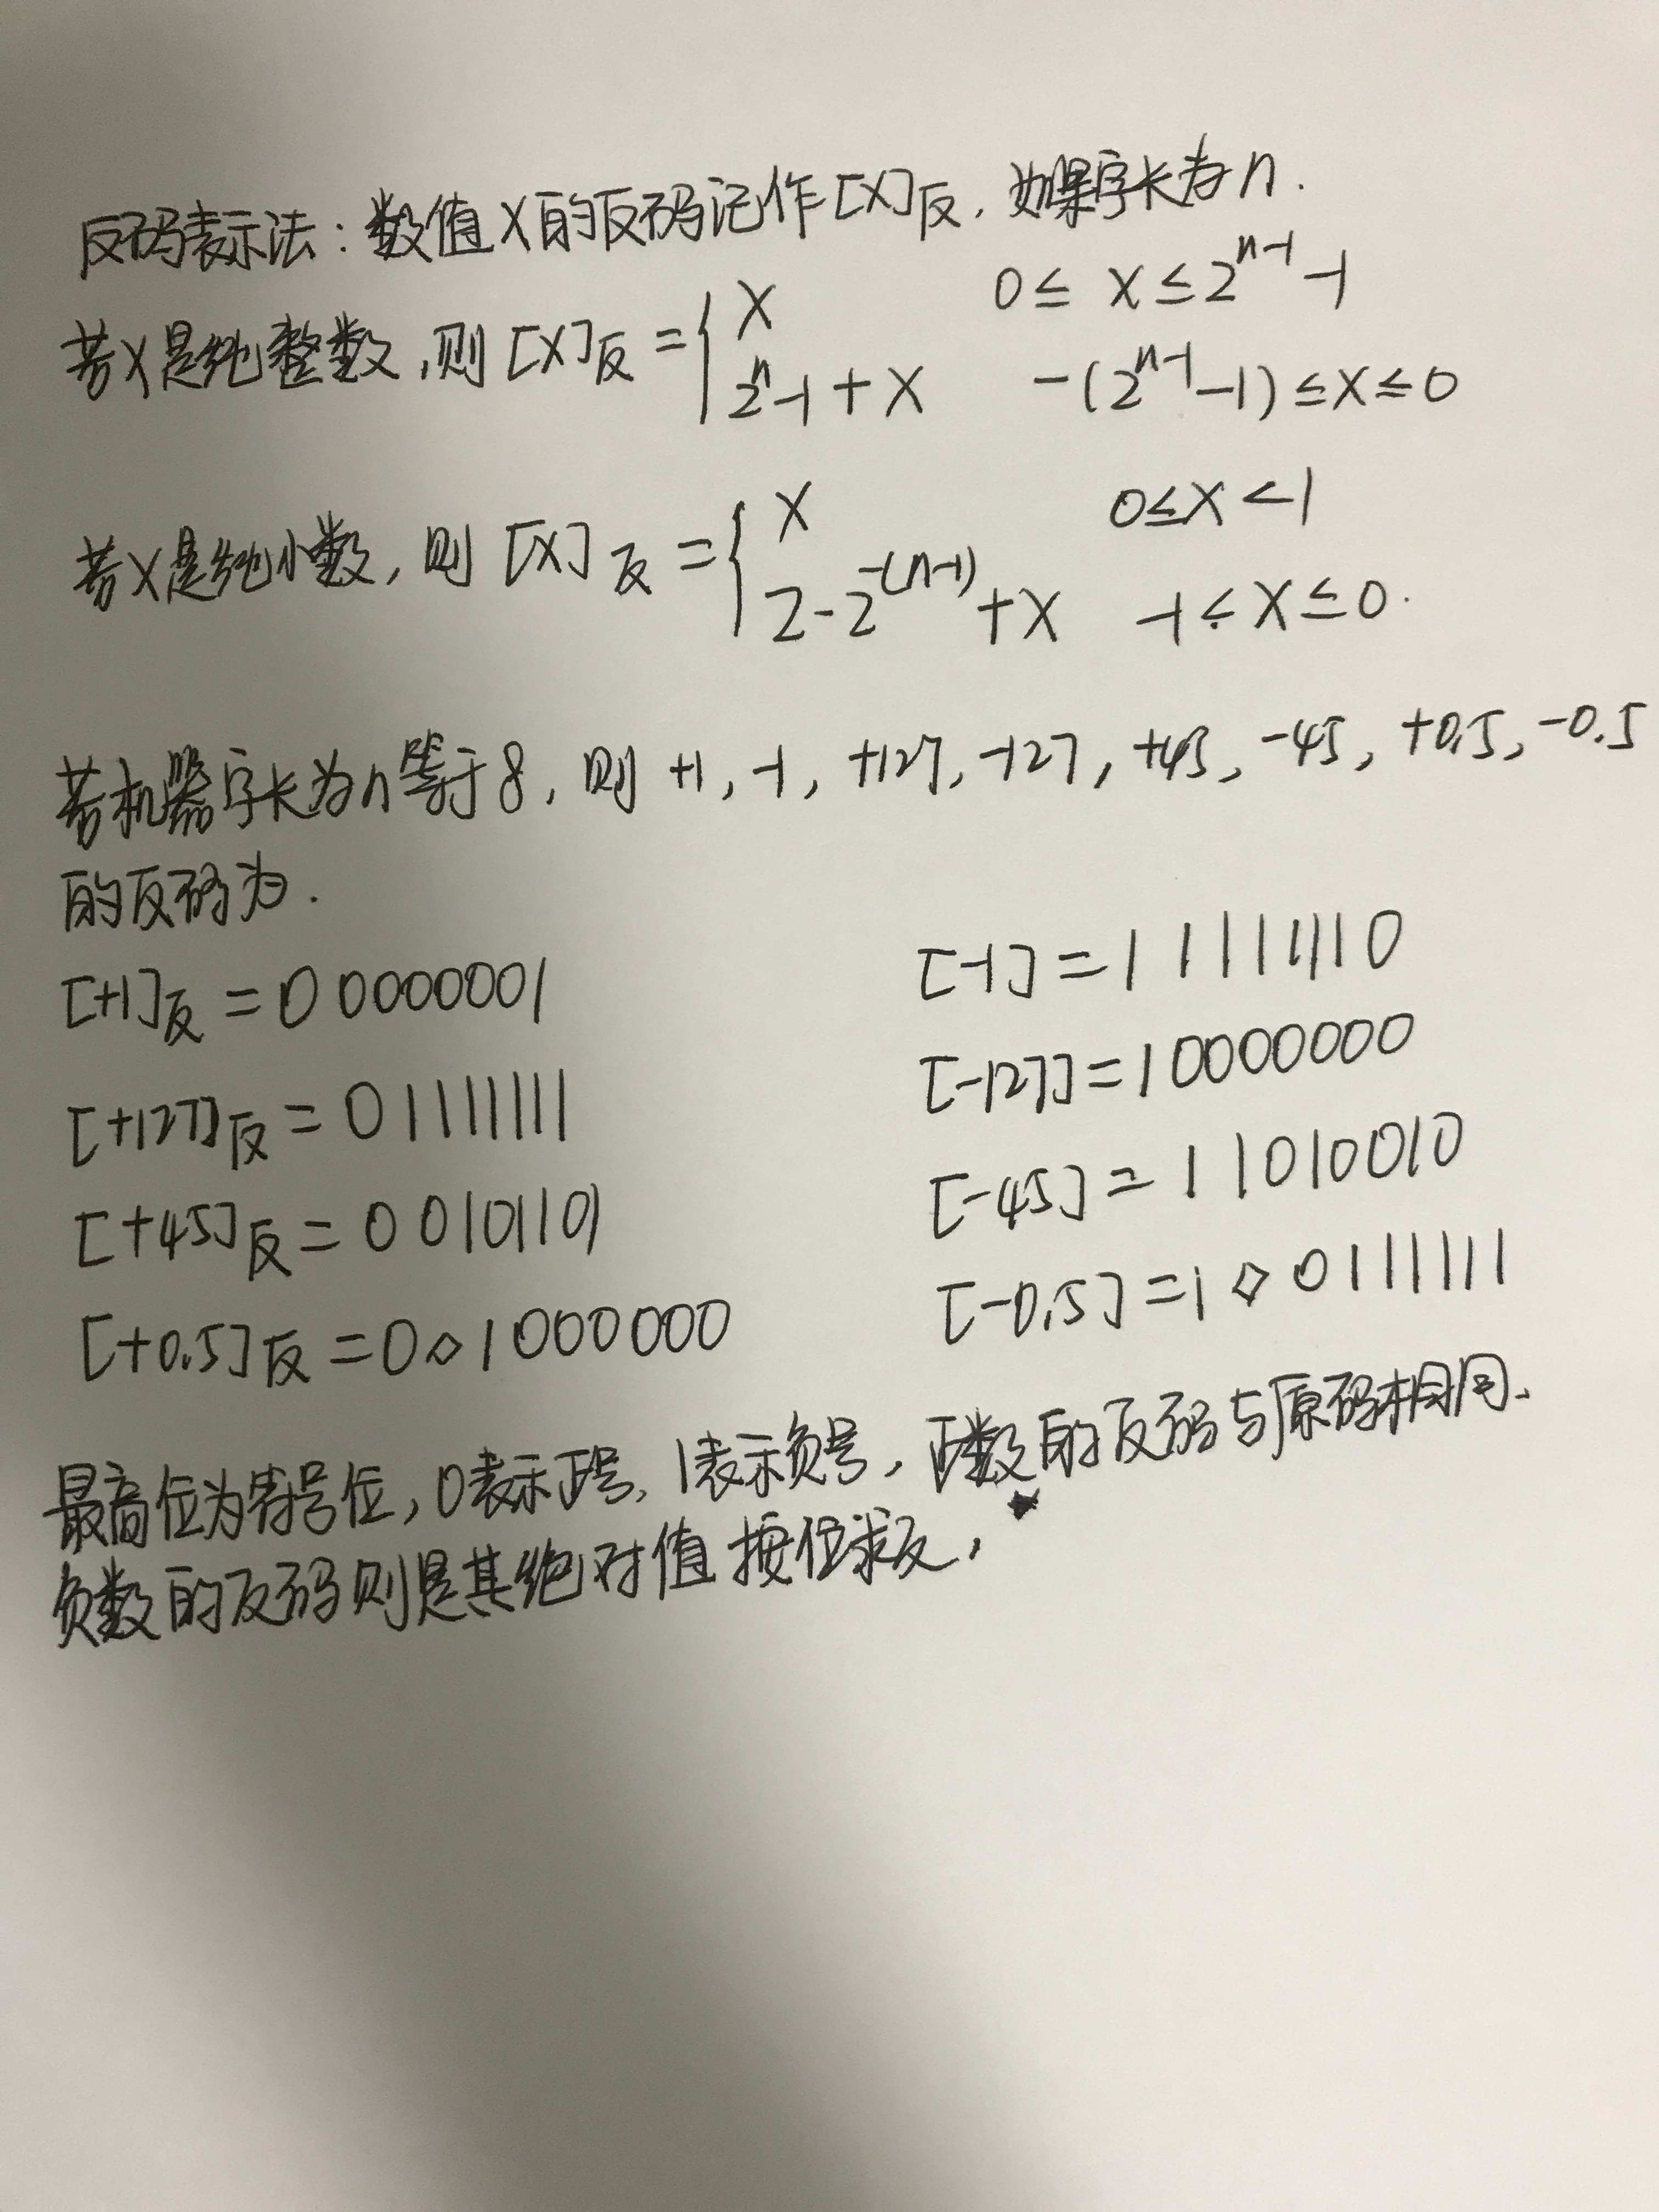 反码表示法：数值X的反码记作[X]反，如果字长为n.
若X是纯整数,则[X]反={X 0≤X≤2^(n-1)-1
2^n-1+X -(2^(n-1)-1)≤X≤0
若X是纯小数,则[X]反={X 0≤X<1
2-2^(-(n-1))+X -1<X≤0.
若机器字长为n等于8,则+1,-1,+127,-127,+45,-45,+0.5,-0.5
的反码为.
[+1]反=0 0000001 [-1]=1 1111110
[+127]反=0 1111111 [-127]=1 0000000
[+45]反=0 0101101 [-45]=1 1010010
[+0.5]反=0◇1000000 [-0.5]=1◇0111111
最高位为符号位,0表示正号,1表示负号,正数的反码与原码相同.
负数的反码则是其绝对值按位求反,